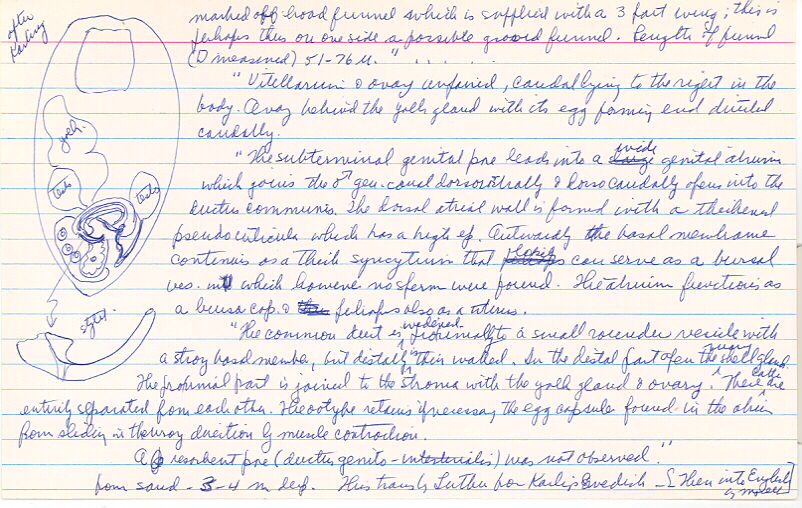 after
Karling
marked off broad funnel which is supplied with a 3 part wing; this is
perhaps thus on one side a possible grooved funnel. Length of funnel
(D measured) 51-76 µ. " . . . . . .
"Vitellarium & ovary unpaired, caudal lying to the right in the
body. Ovary behind the yolk gland with its egg forming end directed
caudally.
"The subterminal genital pore leads into a wide genital atrium
which joins the ♂ gen. canal dorsorostrally & dorsocaudally opens into the
ductus communis. The dorsal atrial wall is formed with a thickened
pseudocuticula which has a high ep. Outwardly the basal membrane
continues as a thick syncytium that can serve as a bursal
ves. in which however no sperm were found. The atrium functions as
a bursa cop. & perhaps also as a uterus.
"The common duct is widened proximally to a small rounder vesicle with
a strong basal member, but distally is thin walled. In the distal part open the many shell gland.
The proximal part is joined to the stroma with the yolk gland & ovary. These are
entirely separated from each other. The ootype retains if necessary the egg capsule found in the atrium
from sliding in the wrong direction by muscle contraction.
A resorbent pore (ductus genito-intestinalis) was not observed."
from sand - 3-4 m deep. This transl. Luther from Karling's Swedish - [Then into English
by myself]
yolk
testis
testis
stylet.